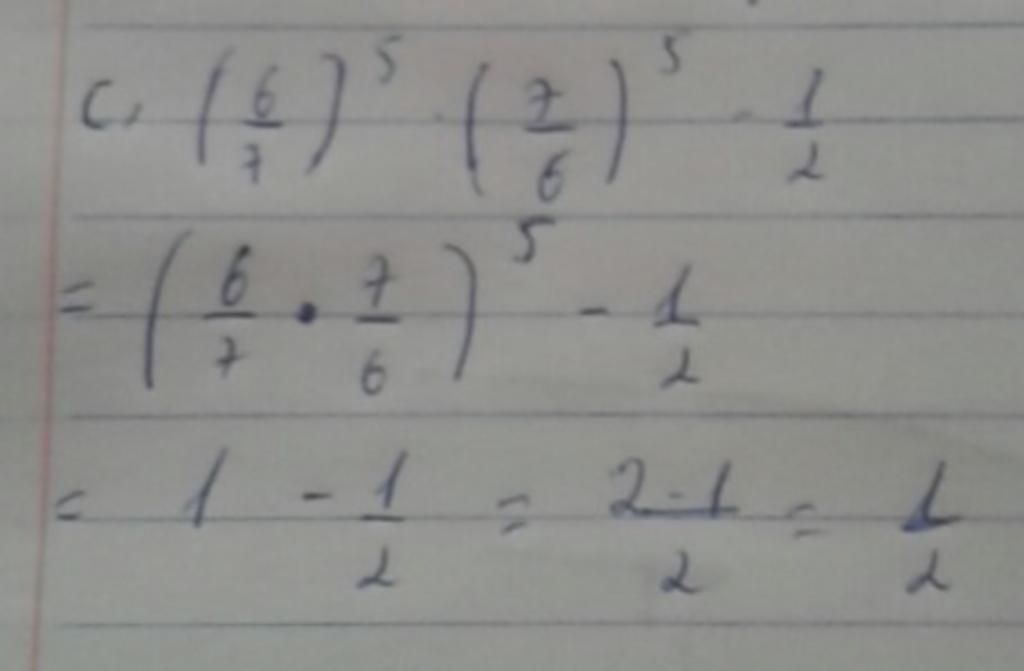 c, (6/7)^5 · (7/6)^5 - 1/2
= (6/7 • 7/6)^5 - 1/2
= 1 - 1/2 = 2-1/2 = 1/2